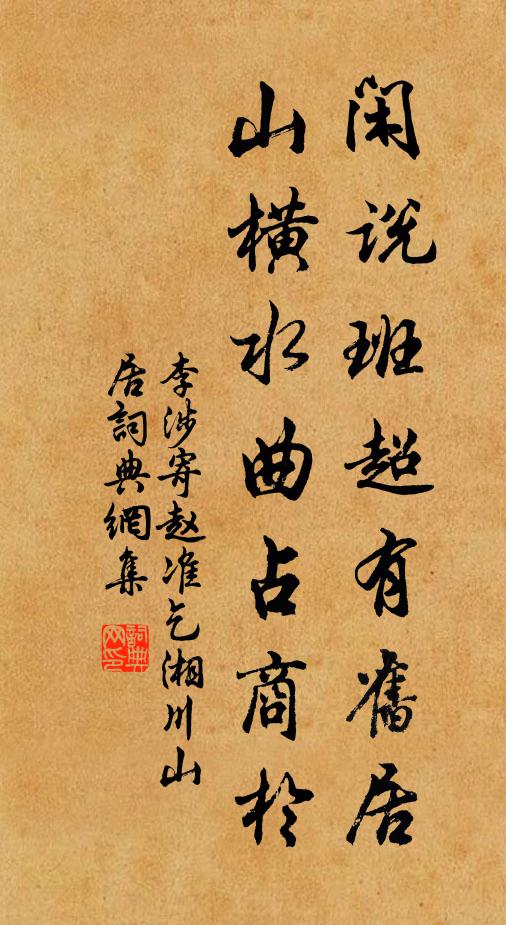 闲说班超有舊居
山橫水曲占商於
李涉寄赵准乞湘川山
居詞典網集
詞典
网印